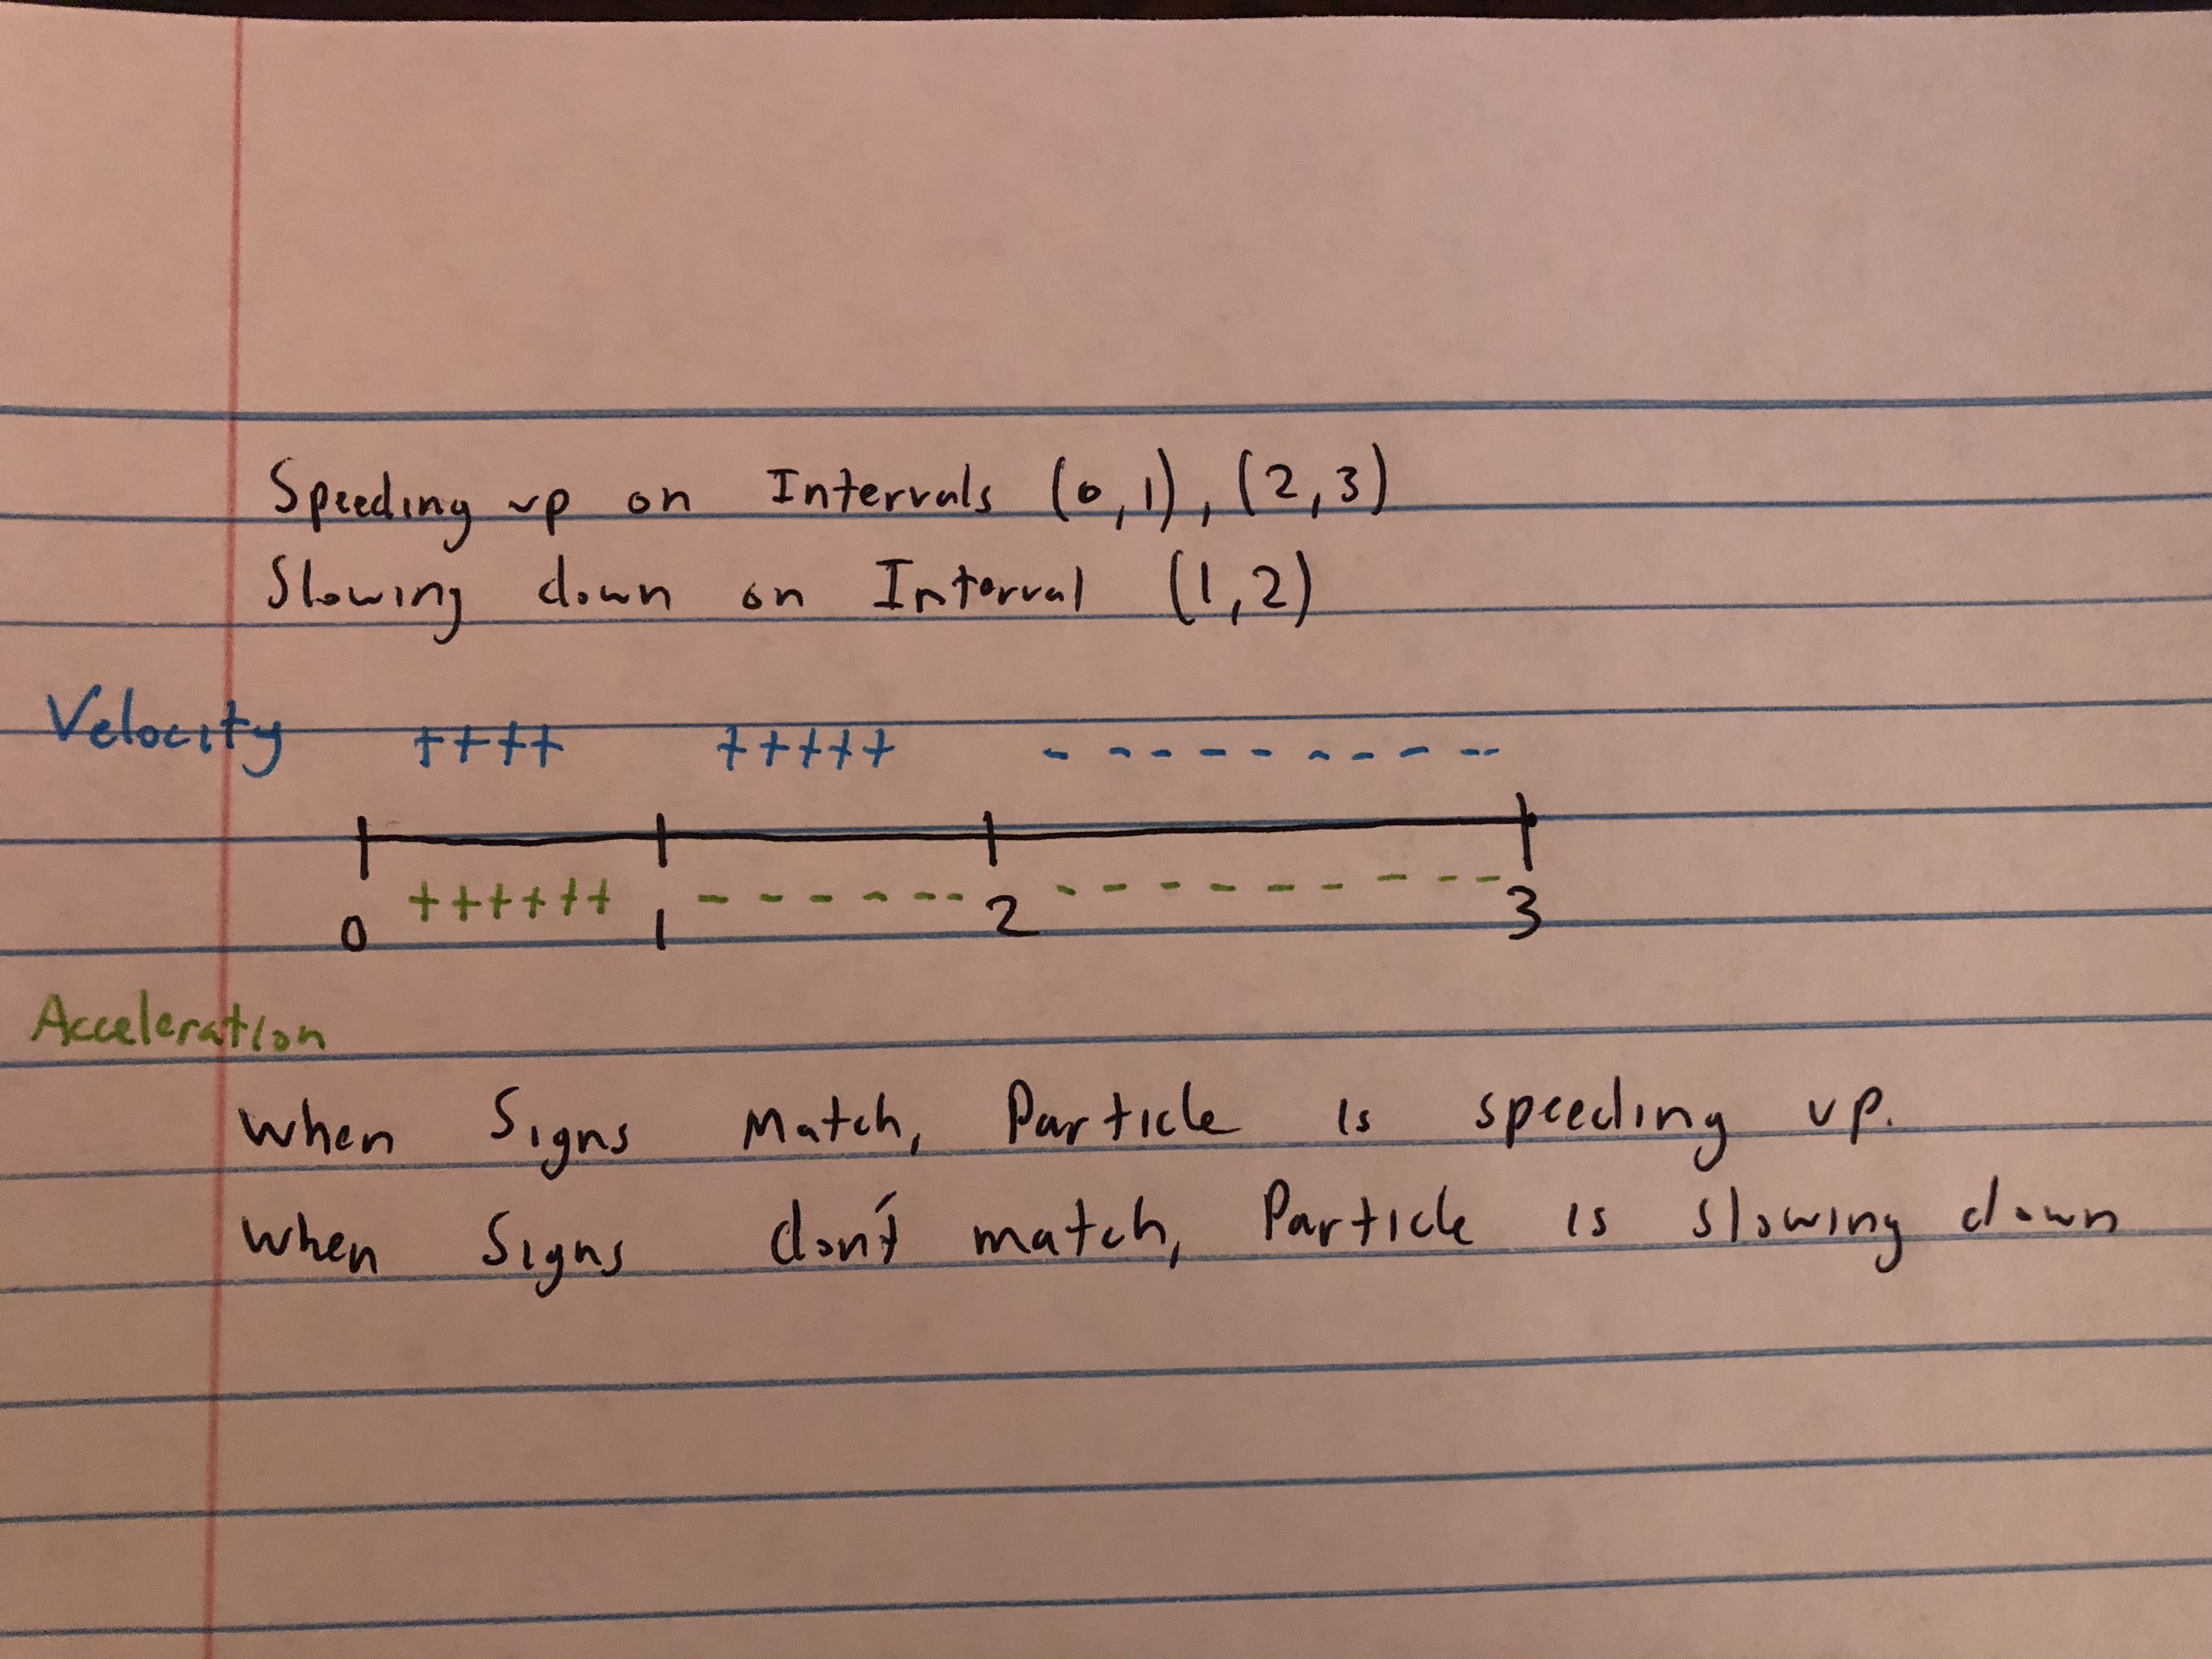 Speeding up on Intervals (0,1), (2,3)
Slowing down on Interval (1,2)
Velocity ++++ ++++ - - - - - - - - - -
+++++ - - - - - - - - - - - - - - -
0 1 2 3
Acceleration
When Signs Match, Particle is speeding up.
When Signs don't match, Particle is slowing down